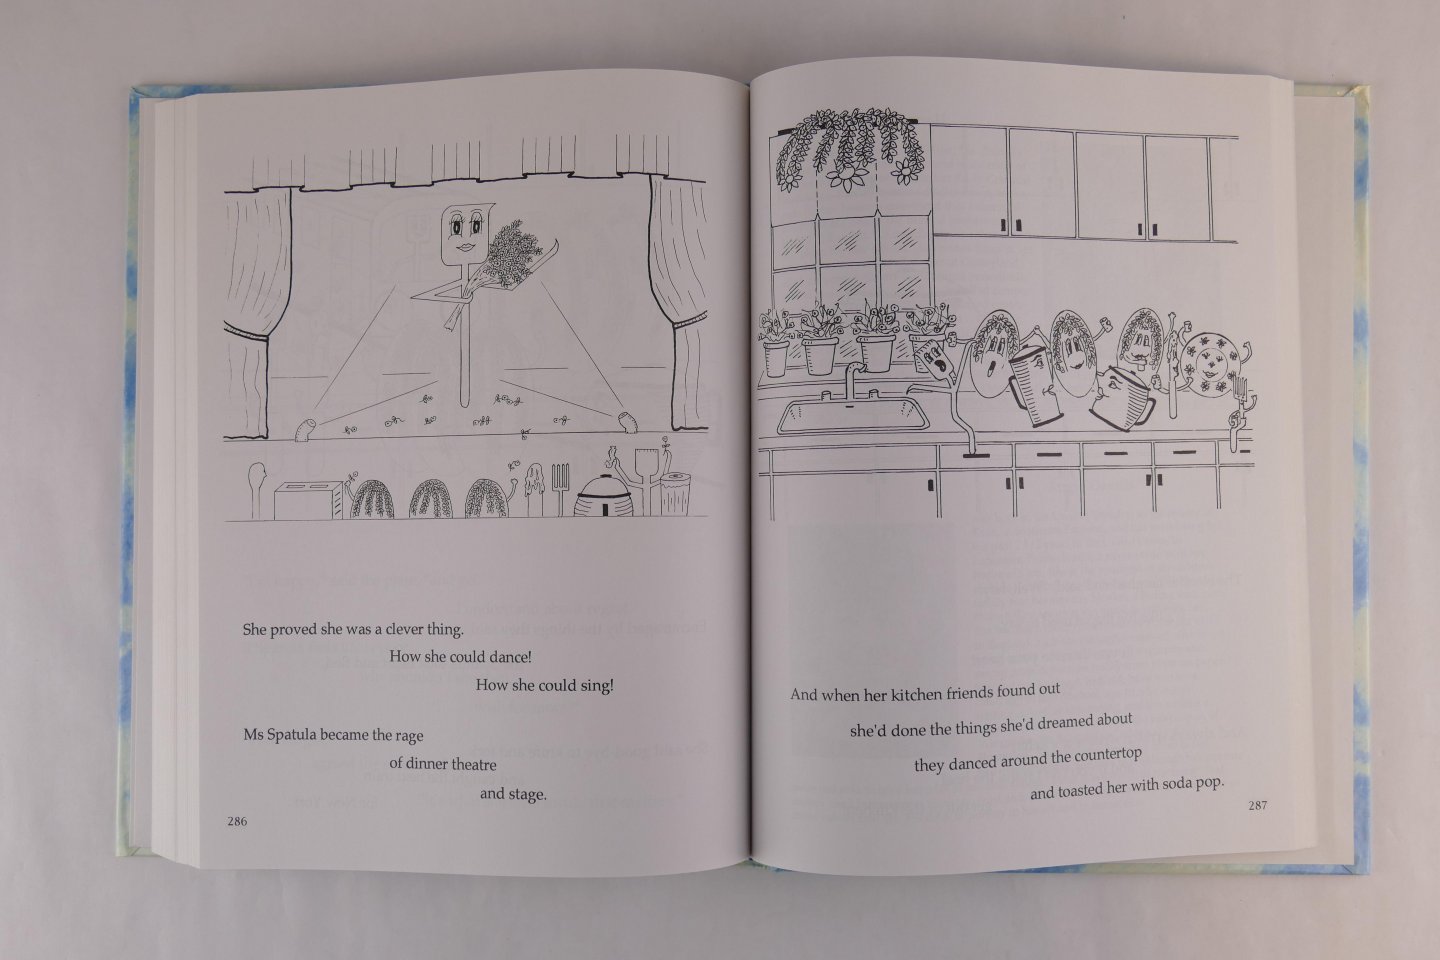 She proved she was a clever thing.
How she could dance!
How she could sing!
Ms Spatula became the rage
of dinner theatre
and stage.
286
And when her kitchen friends found out
she'd done the things she'd dreamed about
they danced around the countertop
and toasted her with soda pop.
287